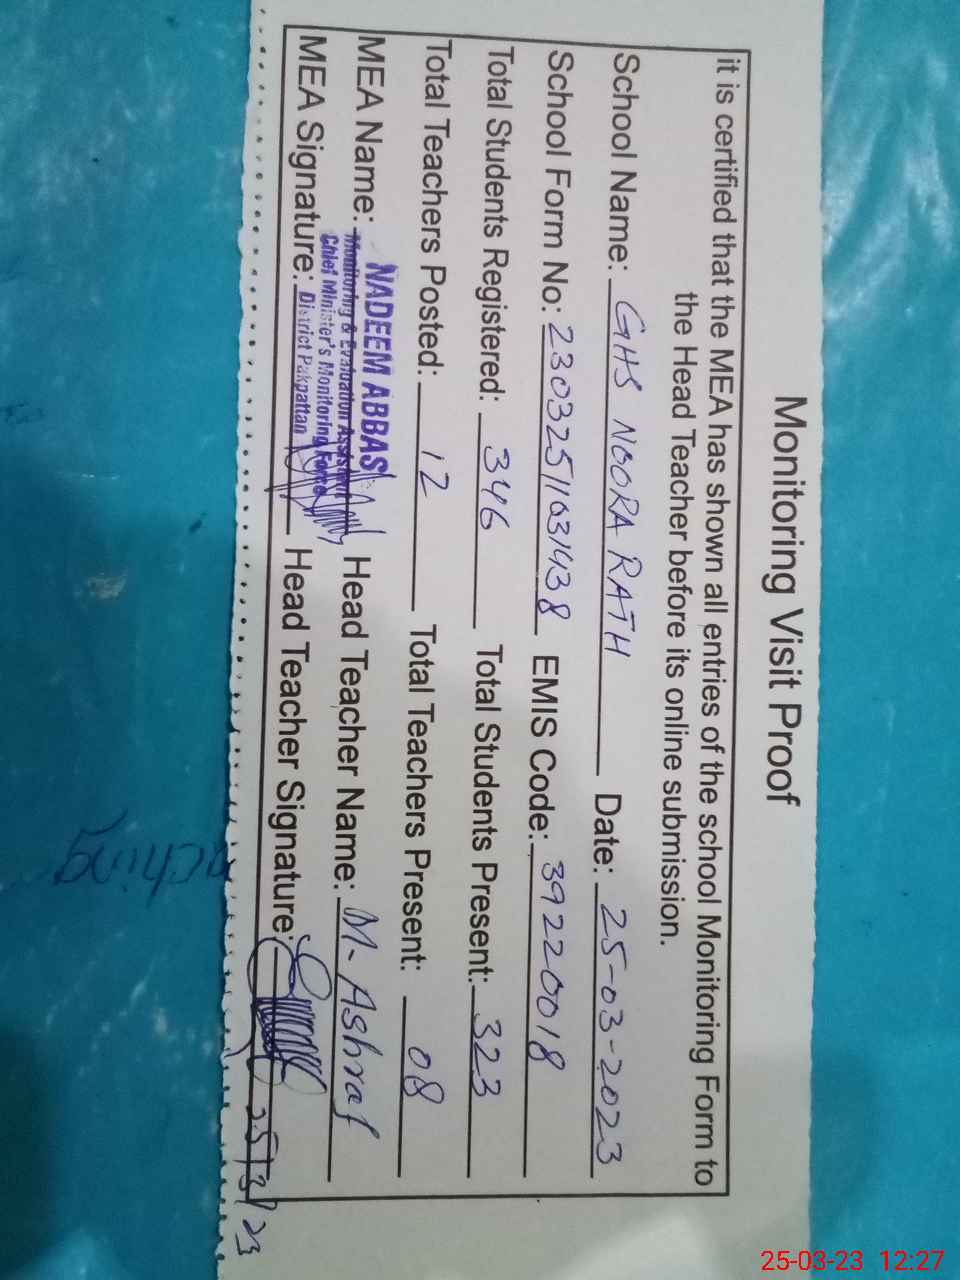 Monitoring Visit Proof
it is certified that the MEA has shown all entries of the school Monitoring Form to
the Head Teacher before its online submission.
School Name: GHS NOORA RATH Date: 25-03-2023
School Form No: 2303251103143 8 EMIS Code: 39220018
Total Students Registered: 346 Total Students Present: 323
Total Teachers Posted: 12 Total Teachers Present: 08
MEA Name: NADEEM ABBAS Head Teacher Name: M- Ashraf
Monitoring & Evaluation Assistant
Chief Minister's Monitoring Force
MEA Signature: District Pakpattan Head Teacher Signature:
25/3/23
aching
25-03-23 12:27